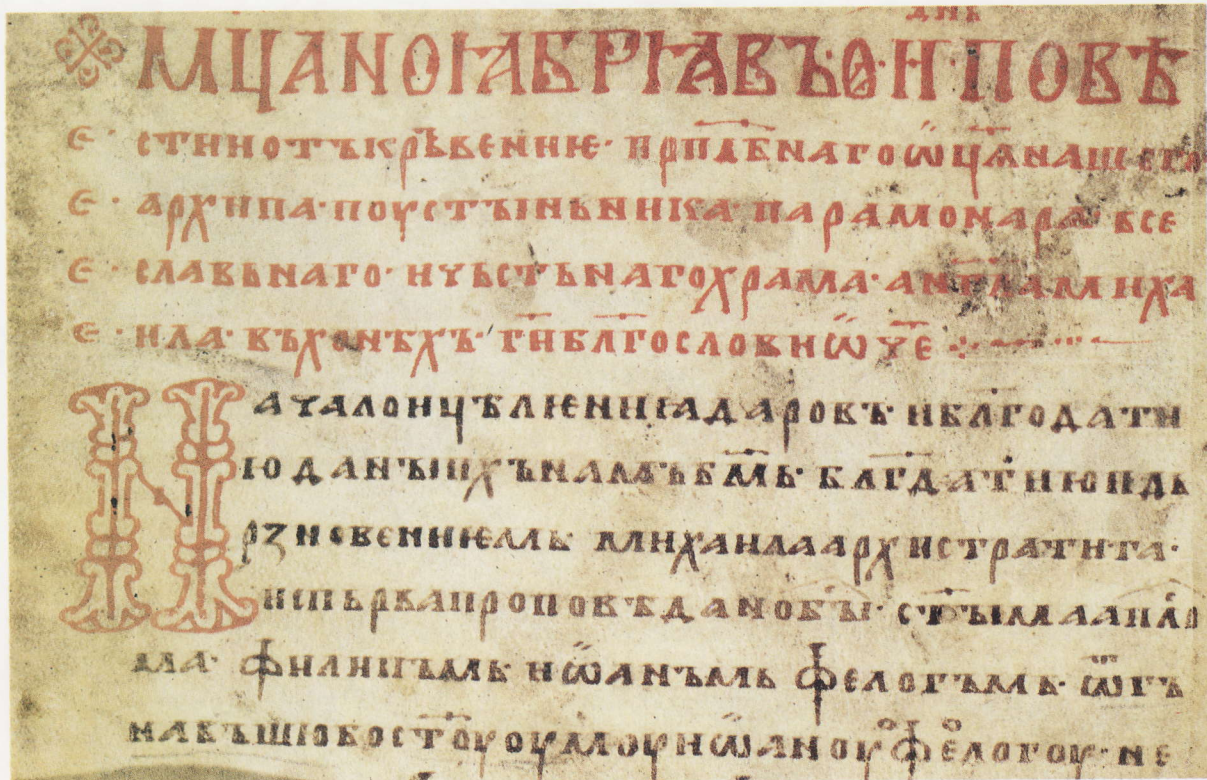 днь
М҃ЦА НОꙖБРꙖ ВЪ·Ѳ·Н·ПОВѢ
є· стииотъкрьвениѥ· прпдбнагоѿцꙗнашего
є· архипа·поустъіньника·парамонара· все
є· славьнаго·ичьстьнагохрама·ан҃гламиха
є· ила·въхонѣхъ·г҃иблг҃ословиѿч҃е
Началоицѣлѥниꙗдаровъ·иблг҃одати
юданъіихънамъб҃мь·блг҃датиюидь
рзновениѥмь·михаилаархистратига·
испьрвапропов҃ѣданобъі·ст҃ъімаапⷭ҇ло
ма·филипъмь·иѿанъмь·фелогъмь·ѿгъ
навъшюбост҃оуоумоуиѿаноуфелогоу·не